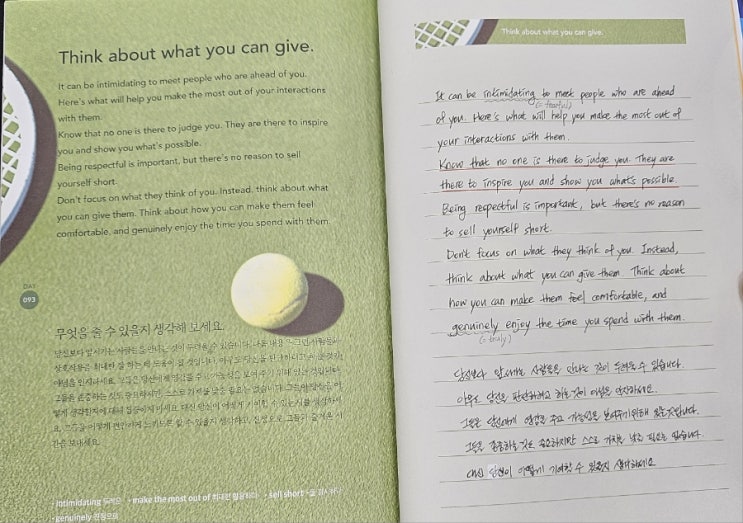 Think about what you can give.
It can be intimidating to meet people who are ahead of you.
Here's what will help you make the most out of your interactions
with them.
Know that no one is there to judge you. They are there to inspire
you and show you what's possible.
Being respectful is important, but there's no reason to sell
yourself short.
Don't focus on what they think of you. Instead, think about what
you can give them. Think about how you can make them feel
comfortable, and genuinely enjoy the time you spend with them.
DAY
093
무엇을 줄 수 있을지 생각해 보세요.
당신보다 앞서가는 사람들을 만나는 것이 두려울 수 있습니다.
간을 보내세요.
• intimidating • make the most out of • sell short
• genuinely
Think about what you can give.
It can be intimidating to meet people who are ahead
(= fearful)
of you. Here's what will help you make the most out of
your interactions with them.
Know that no one is there to judge you. They are
there to inspire you and show you what's possible.
Being respectful is important, but there's no reason
to sell yourself short.
Don't focus on what they think of you. Instead,
think about what you can give them. Think about
how you can make them feel comfortable, and
genuinely enjoy the time you spend with them.
(= truly)
당신보다 앞서가는 사람들을 만나는 것이 두려울 수 있습니다.
아무도 당신을 판단하려고 하는 것이 아님을 인지하세요.
그들은 당신에게 영감을 주고 가능성을 보여주기 위해 있는 것입니다.
그들을 존중하는 것도 중요하지만 스스로 가치를 낮출 필요는 없습니다.
대신 당신이 어떻게 기여할 수 있을지 생각하세요